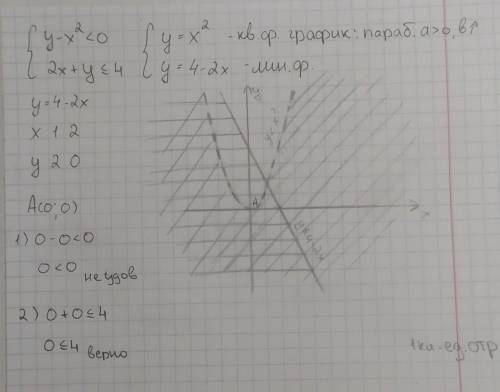 { y-x²<0
2x+y≤4
{ y=x² -кв.ф. график: параб. a>0, в↑
y=4-2x -лин.ф.
y=4-2x
x 1 2
y 2 0
A(0;0)
1) 0-0<0
0<0 не удов
2) 0+0≤4
0≤4 верно
y
A
x
1кл-ед.отр